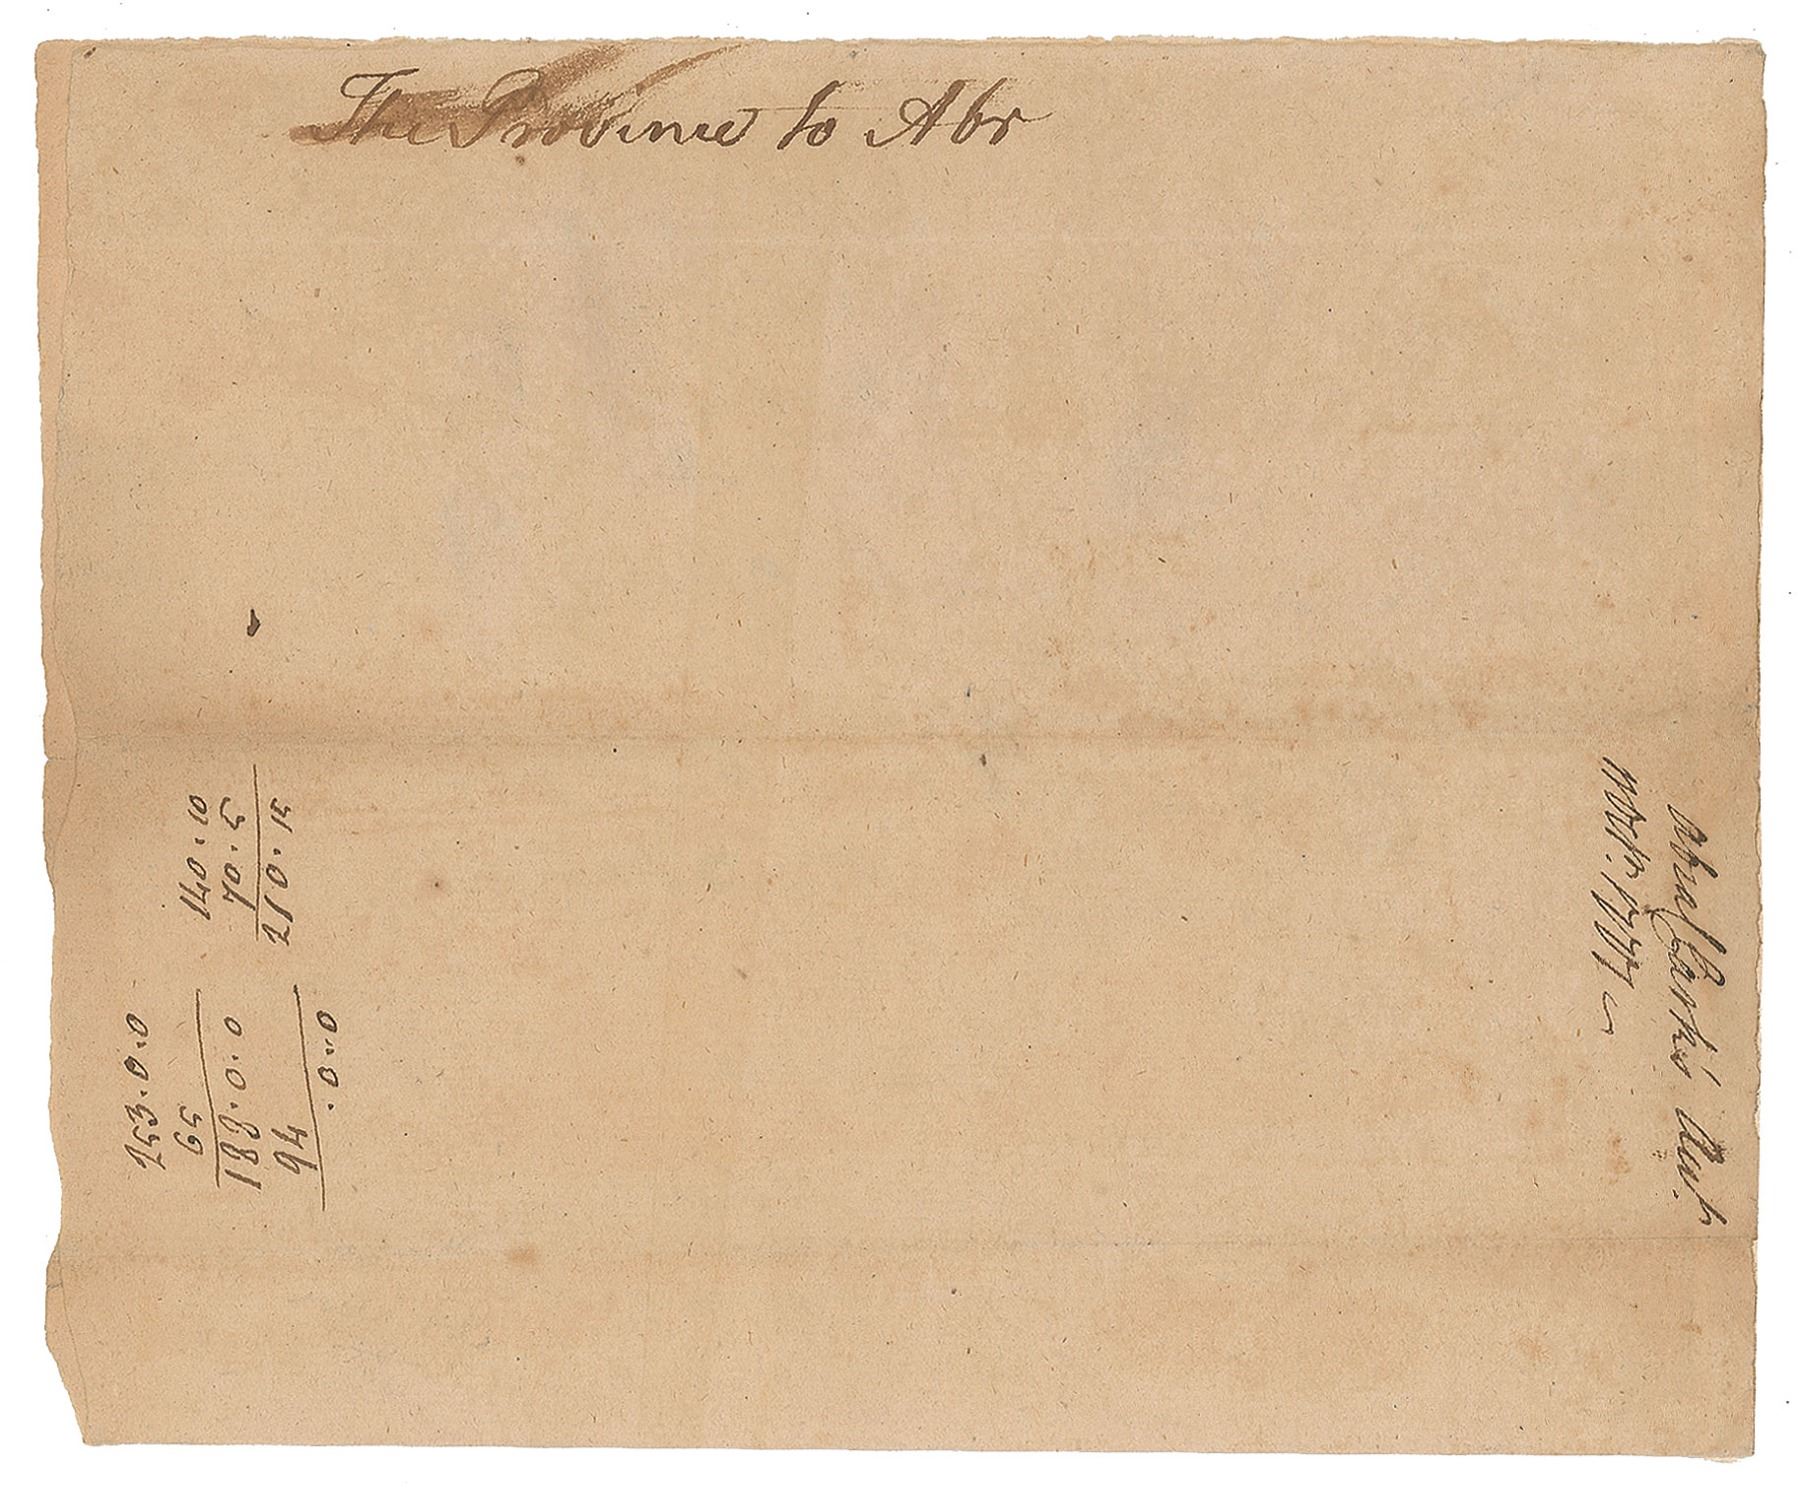 The Province to Abr
140.10
70.5
210.15
253.0.0
65
188.0.0
94
.0.0
Abra Clark's Acct
1777